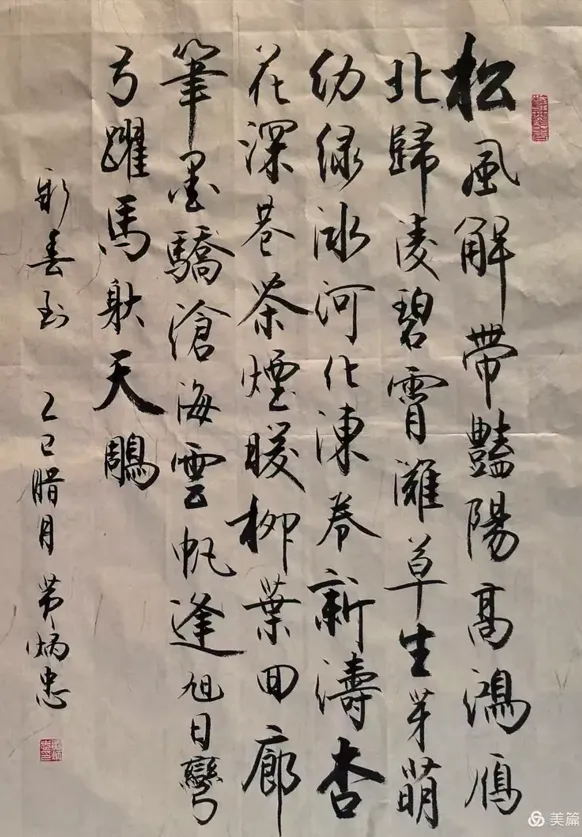 松風解帶豔陽高鴻雁
北歸凌碧霄灘草生芽萌
幼绿冰河化凍卷新濤杏
花深巷茶煙暖柳葉回廊
筆墨驕滄海雲帆逢旭日彎
弓躍馬射天鵰
新春到 乙巳腊月 炳忠
美篇